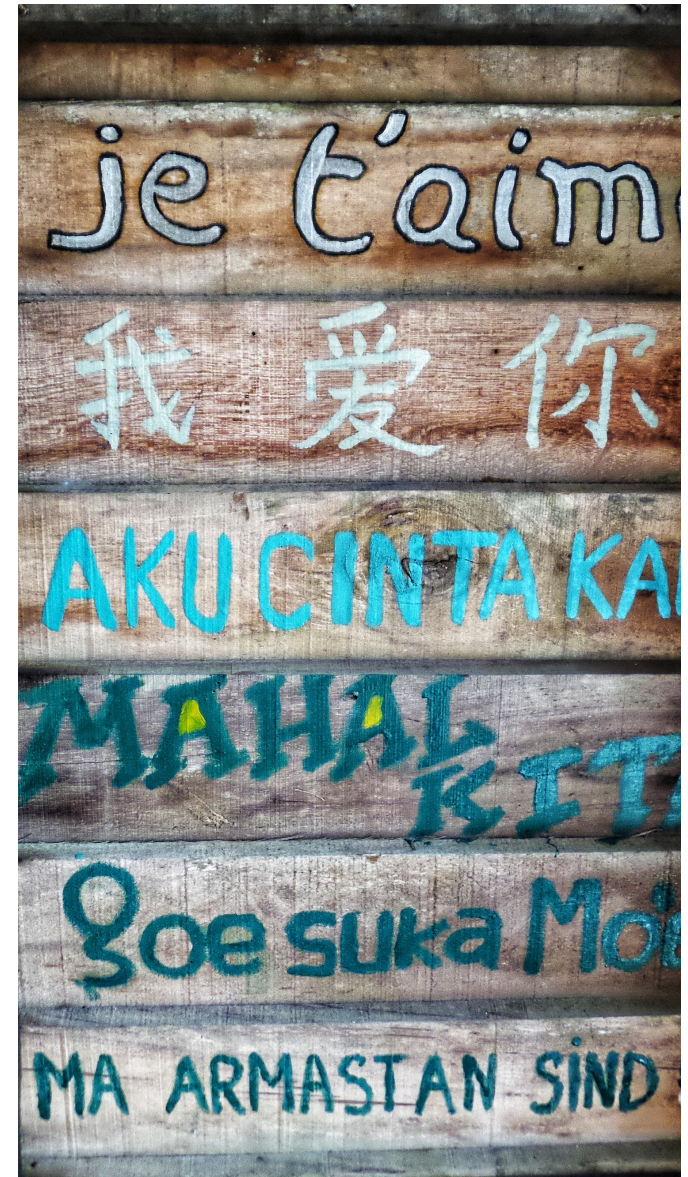 je t'aim
我爱你
AKU CINTA KA
MAHAL
KITA
goe suka Mo'e
MA ARMASTAN SIND